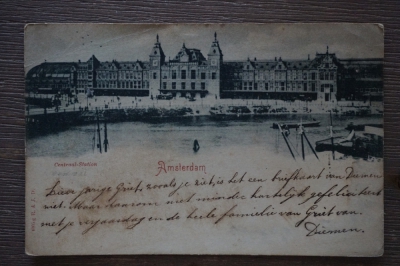 Centraal-Station
Amsterdam
Lieve jarige Griet, zooals je ziet is het een briefkaart van Diemen
niet. Maar daarom niet minder hartelijk gefeliciteerd
met je verjaardag en de heele familie van Griet van
Diemen.